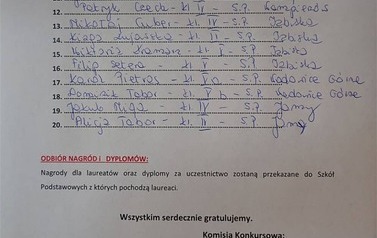 12. Patryk Czech - kl II - S.P.
13. Mikołaj Cuber - kl. IV - S.P. Izbiska
14. Kinga - kl. II - S.P. Izbiska
15. Wiktoria - kl. I - S.P. Izbiska
16. Filip - kl. II - S.P. Izbiska
17. Karol Pietras - kl. V a - S.P. Wadowice Górne
18. Dominik Tabor - kl. V b - S.P. Wadowice Górne
19. Jakub Miga - kl. IV - S.P. Jamy
20. Alicja Tabor - kl. II - S.P. Jamy
ODBIÓR NAGRÓD I DYPLOMÓW:
Nagrody dla laureatów oraz dyplomy za uczestnictwo zostaną przekazane do Szkół
Podstawowych z których pochodzą laureaci.
Wszystkim serdecznie gratulujemy.
Komisja Konkursowa: